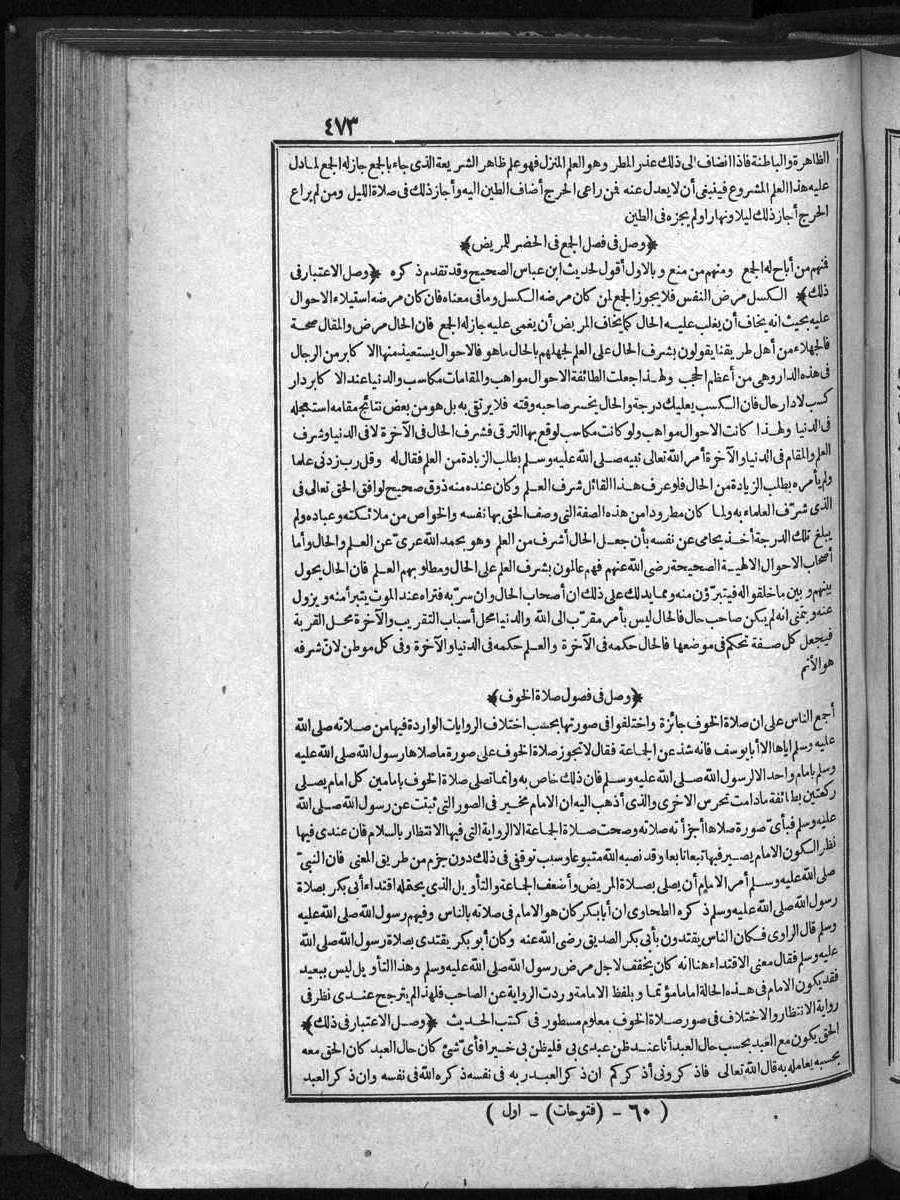 ٤٧٣
الظاهرة والباطنة فاذا انضاف الى ذلك عذر المطر وهو العلم المنزل فهو علم ظاهر الشريعة الذى جاء بالجمع جاز له الجمع لما دل
عليه هذا العلم المشروع فينبغى أن لا يعدل عنه فمن راعى الحرج أضاف الطين اليه وأجاز ذلك فى صلاة الليل ومن لم يراع
الحرج أجاز ذلك ليلا ونهارا ولم يجزه فى الطين
﴿وصل فى فصل الجمع فى الحضر للمريض﴾
فمنهم من أباح له الجمع ومنهم من منع وبالاول أقول لحديث ابن عباس الصحيح وقد تقدم ذكره ﴿وصل الاعتبار فى
ذلك﴾ الكسل مرض النفس فلا يجوز الجمع لمن كان مرضه الكسل وما فى معناه فان كان مرضه استيلاء الاحوال
عليه بحيث انه يخاف أن يغلب عليه الحال كما يخاف المريض أن يغمى عليه جاز له الجمع فان الحال مرض والمقال صحة
فالجهلاء من أهل طريقنا يقولون بشرف الحال على العلم لجهلهم بالحال ما هو فالاحوال يستعيذ منها الاكابر من الرجال
فى هذه الدار وهى من أعظم الحجب ولهذا جعلت الطائفة الاحوال مواهب والمقامات مكاسب والدنيا عند الاكابر دار
كسب لا دار حال فان الكسب يعليك درجة والحال يخسر صاحبه وقته فلا يرتقى به بل هو من بعض نتائج مقامه استعجله
فى الدنيا ولهذا كانت الاحوال مواهب ولو كانت مكاسب لوقع بها الترقى فشرف الحال فى الآخرة لا فى الدنيا وشرف
العلم والمقام فى الدنيا والآخرة أمر الله تعالى نبيه صلى الله عليه وسلم بطلب الزيادة من العلم فقال له وقل رب زدنى علما
ولم يأمره بطلب الزيادة من الحال فلو عرف هذا القائل شرف العلم وكان عنده منه ذوق صحيح لوافق الحق تعالى فى
الذى شرّف العلماء به ولما كان مطرودا من هذه الصفة التى وصف الحق بها نفسه والخواص من ملائكته وعباده ولم
يبلغ تلك الدرجة أخذ يحامى عن نفسه بأن جعل الحال أشرف من العلم وهو بحمد الله عرىّ عن العلم والحال وأما
أصحاب الاحوال الالهية الصحيحة رضى الله عنهم فهم عالمون بشرف العلم على الحال ومطلوبهم العلم فان الحال يحول
بينهم وبين ما خلقوا له فيتبرّؤن منه ومما يدلك على ذلك ان أصحاب الحال وان سرّ به فتراه عند الموت يتبرأ منه ويزول
عنه ويتمنى انه لم يكن صاحب حال فالحال ليس بأمر مقرّب الى الله والدنيا محل أسباب التقريب والآخرة محل القربة
فيجعل كل صفة تحكم فى موضعها فالحال حكمه فى الآخرة والعلم حكمه فى الدنيا والآخرة وفى كل موطن لان شرفه
هو الأتم
﴿وصل فى فصول صلاة الخوف﴾
أجمع الناس على ان صلاة الخوف جائزة واختلفوا فى صورتها بحسب اختلاف الروايات الواردة فيها من صلاته صلى الله
عليه وسلم اياها الا أبا يوسف فانه شذ عن الجماعة فقال لا تجوز صلاة الخوف على صورة ما صلاها رسول الله صلى الله عليه
وسلم بامام واحد الا لرسول الله صلى الله عليه وسلم فان ذلك خاص به وانما تصلى صلاة الخوف بامامين كل امام يصلى
ركعتين بطائفة ما دامت تحرس الاخرى والذى أذهب اليه ان الامام مخير فى الصور التى ثبتت عن رسول الله صلى الله
عليه وسلم فبأىّ صورة صلاها أجزأته صلاته وصحت صلاة الجماعة الا الرواية التى فيها الانتظار بالسلام فان عندى فيها
نظر الكون الامام يصير فيها تبعا تابعا وقد نصبه الله متبوعا وسبب توقفى فى ذلك دون جزم من طريقى المعنى فان النبىّ
صلى الله عليه وسلم أمر الامام أن يصلى بصلاة المريض وأضعف الجماعة والتأويل الذى يحتمله اقتداء أبى بكر بصلاة
رسول الله صلى الله عليه وسلم ذكره الطحاوى ان أبا بكر كان هو الامام فى صلاته بالناس وفيهم رسول الله صلى الله عليه
وسلم قال الراوى فكان الناس يقتدون بأبى بكر الصديق رضى الله عنه وكان أبو بكر يقتدى بصلاة رسول الله صلى الله
عليه وسلم فقال معنى الاقتداء هنا انه كان يخفف لاجل مرض رسول الله صلى الله عليه وسلم وهذا التأويل ليس ببعيد
فقد يكون الامام فى هذه الحالة اماما مؤتما وبلفظ الامامة وردت الرواية عن الصاحب فلهذا لم يترجح عندى نظر فى
رواية الانتظار والاختلاف فى صور صلاة الخوف معلوم مسطور فى كتب الحديث ﴿وصل الاعتبار فى ذلك﴾
الحق يكون مع العبد بحسب حال العبد أنا عند ظن عبدى بى فليظن بى خيرا فأىّ شئ كان حال العبد كان الحق معه
بحسبه يعامله به قال الله تعالى فاذكرونى أذكركم ان ذكر العبد ربه فى نفسه ذكره الله فى نفسه وان ذكر العبد
(٦٠ - (فتوحات) - اول)